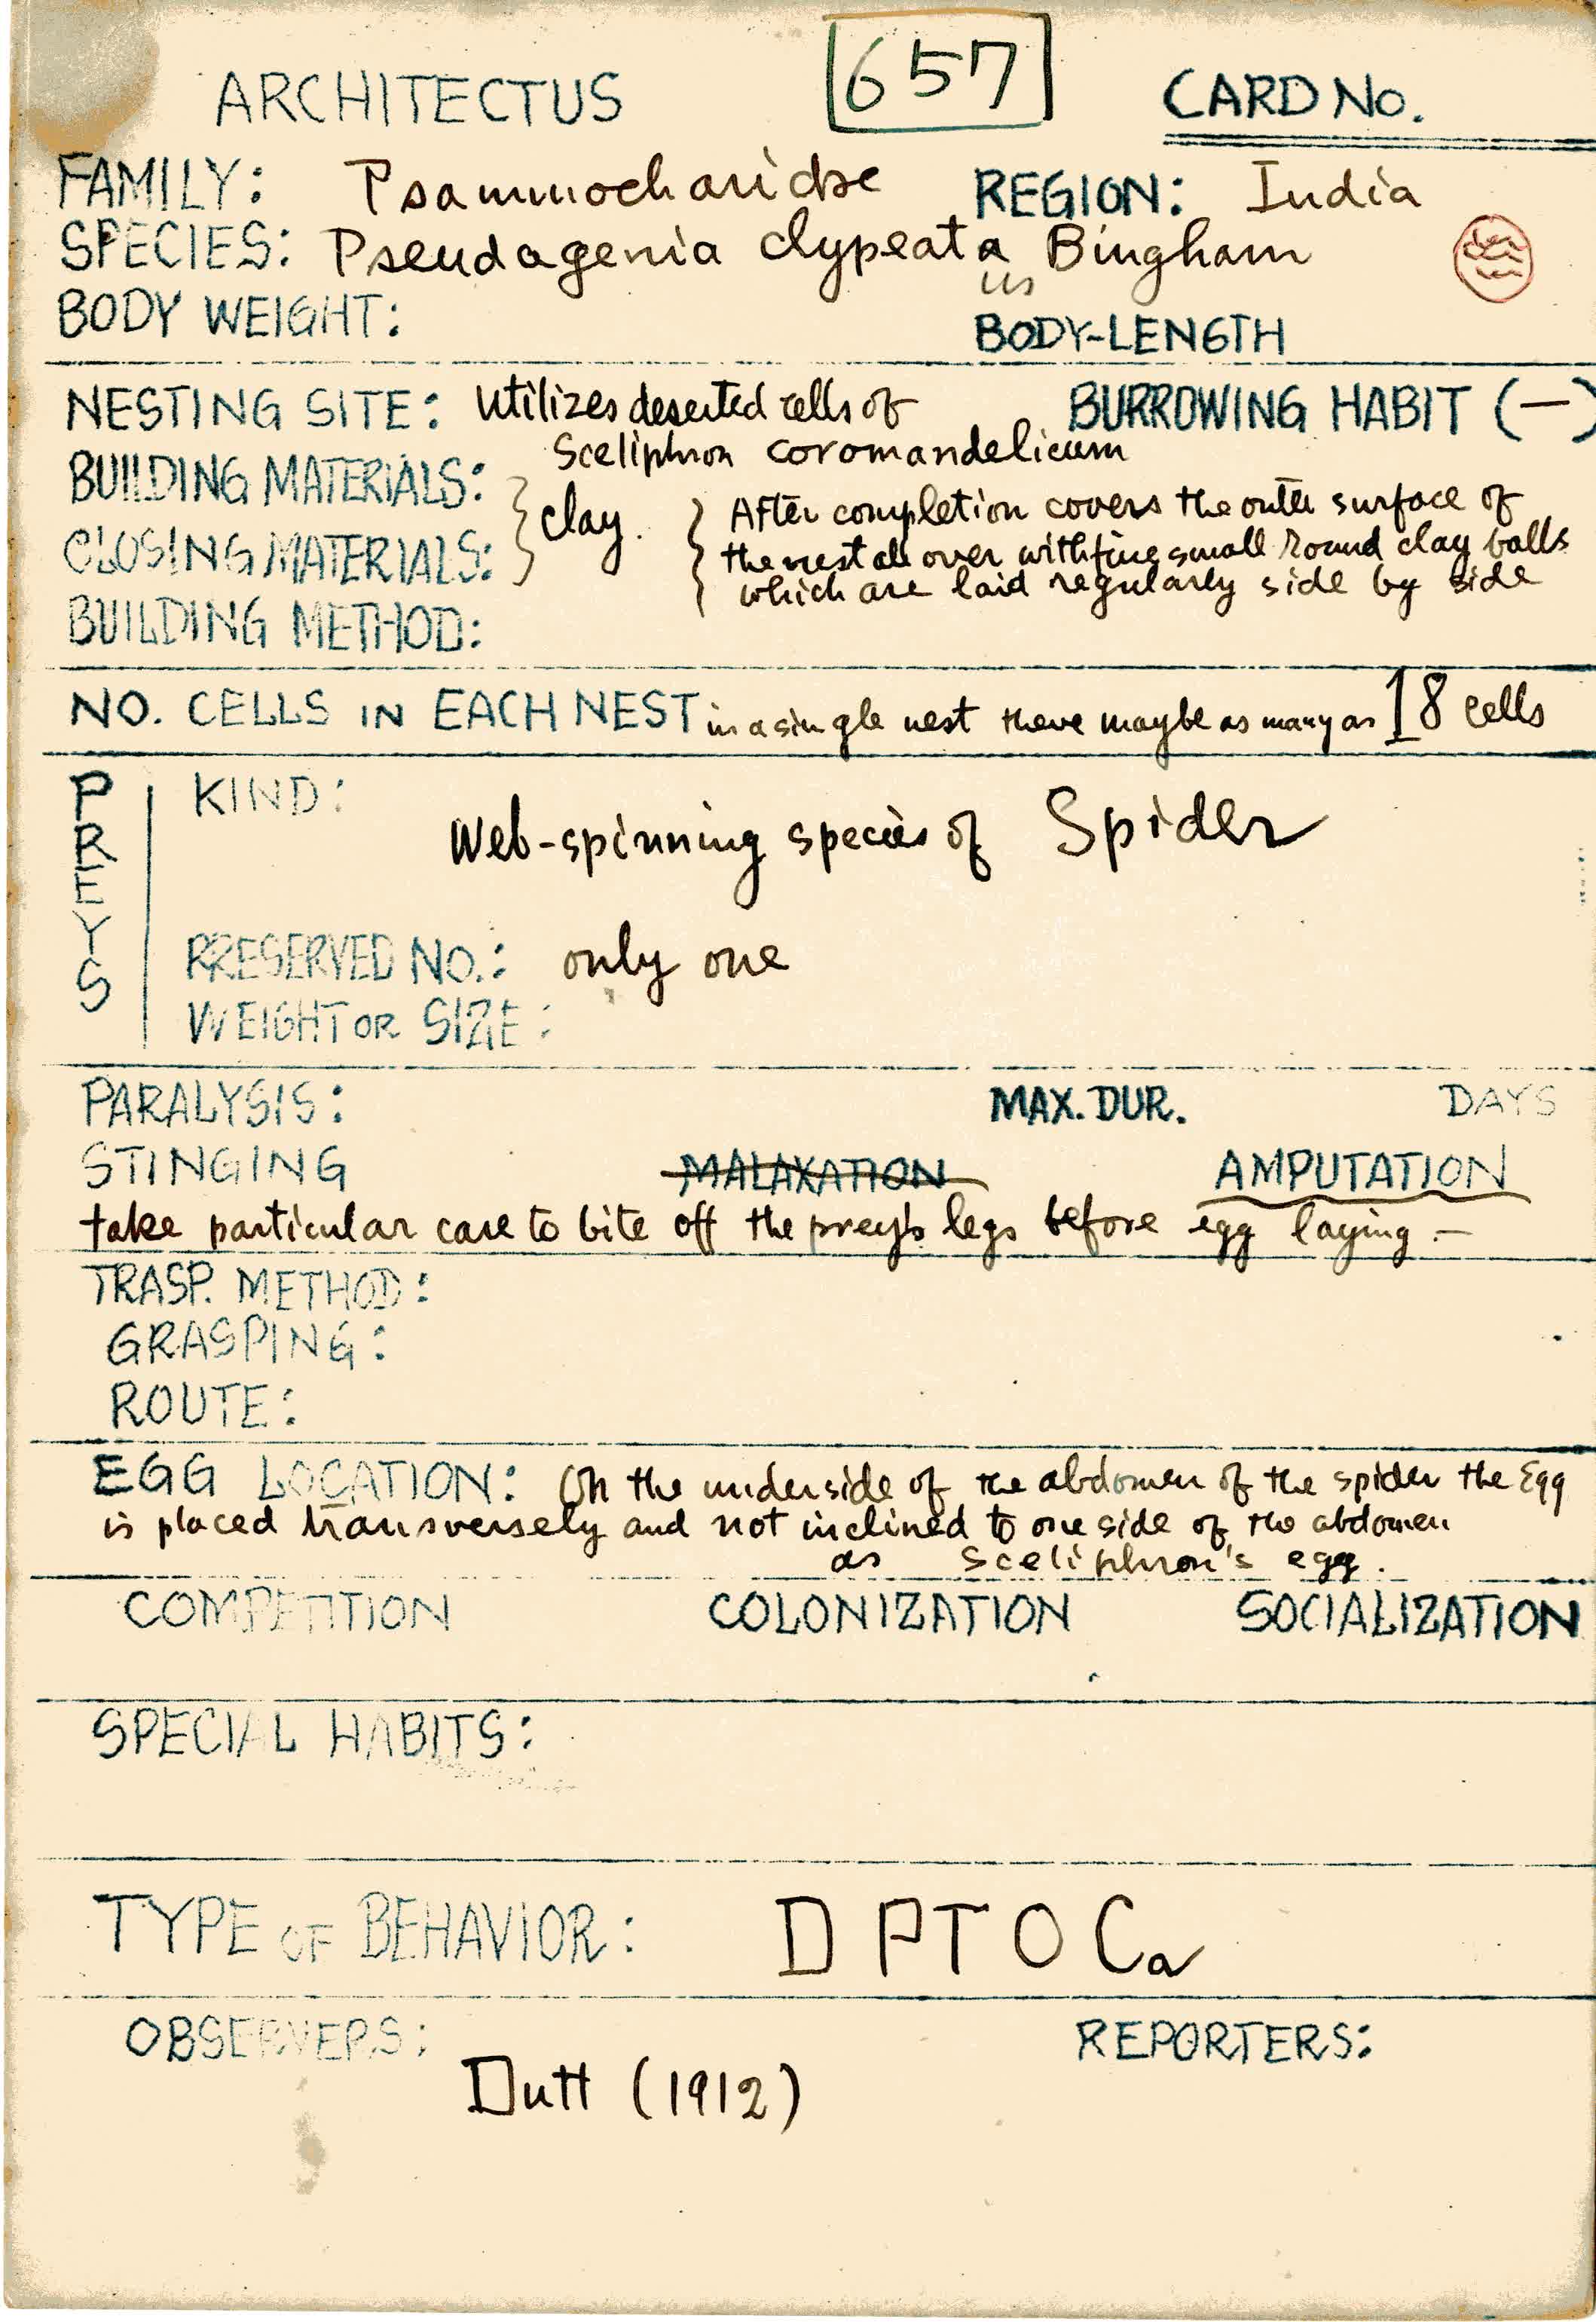 ARCHITECTUS 657 CARD No.
FAMILY: Psammocharidae REGION: India
SPECIES: Pseudagenia clypeata Bingham
us
BODY WEIGHT: BODY-LENGTH
NESTING SITE: utilizes deserted cells of BURROWING HABIT (—)
Sceliphron coromandelicum
BUILDING MATERIALS:
CLOSING MATERIALS: } clay. { After completion covers the outer surface of
the nest all over with fine small round clay balls
which are laid regularly side by side
BUILDING METHOD:
NO. CELLS IN EACH NEST in a single nest there may be as many as 18 cells
PREYS KIND:
Web-spinning species of Spider
PRESERVED NO.: only one
WEIGHT OR SIZE:
PARALYSIS: MAX. DUR. DAYS
STINGING MALAXATION AMPUTATION
take particular care to bite off the prey's legs before egg laying.—
TRASP. METHOD:
GRASPING:
ROUTE:
EGG LOCATION: On the underside of the abdomen of the spider the Egg
is placed transversely and not inclined to one side of the abdomen
as Sceliphron's egg.
COMPETITION COLONIZATION SOCIALIZATION
SPECIAL HABITS:
TYPE OF BEHAVIOR: D P T O Ca
OBSERVERS: REPORTERS:
Dutt (1912)